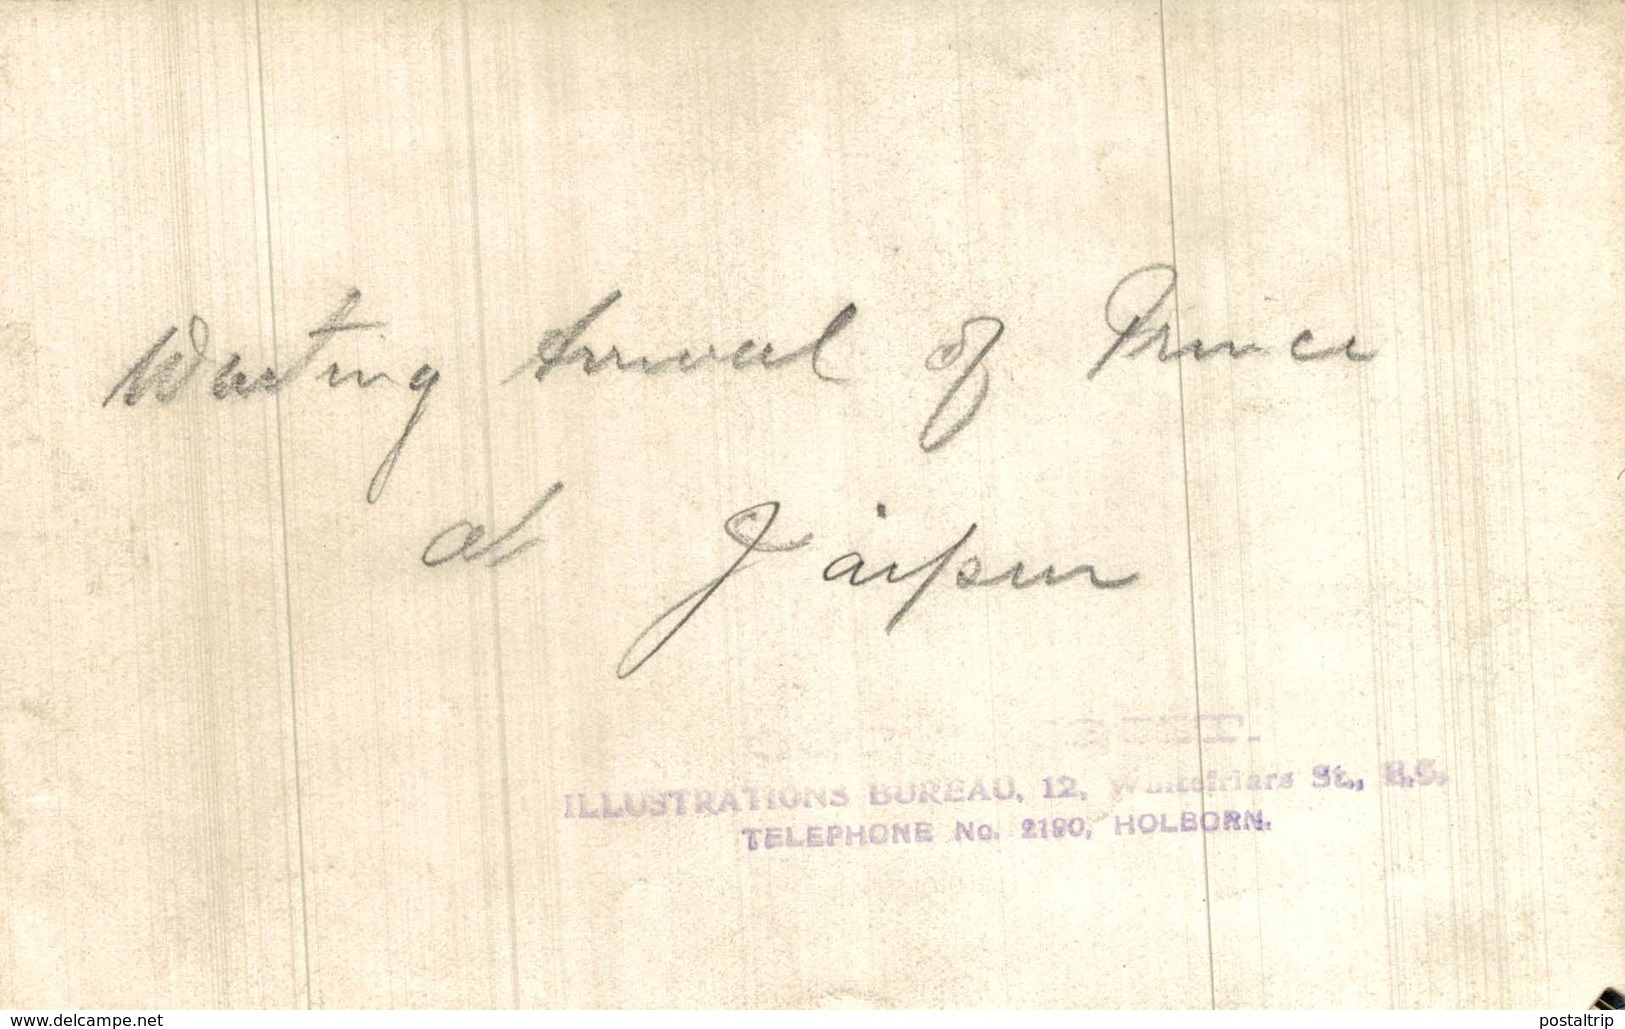 Waiting Arrival of Prince
at Jaipur
ILLUSTRATIONS BUREAU, 12, Whitefriars St., E.C.
TELEPHONE No. 2190, HOLBORN.
www.delcampe.net
postaltrip